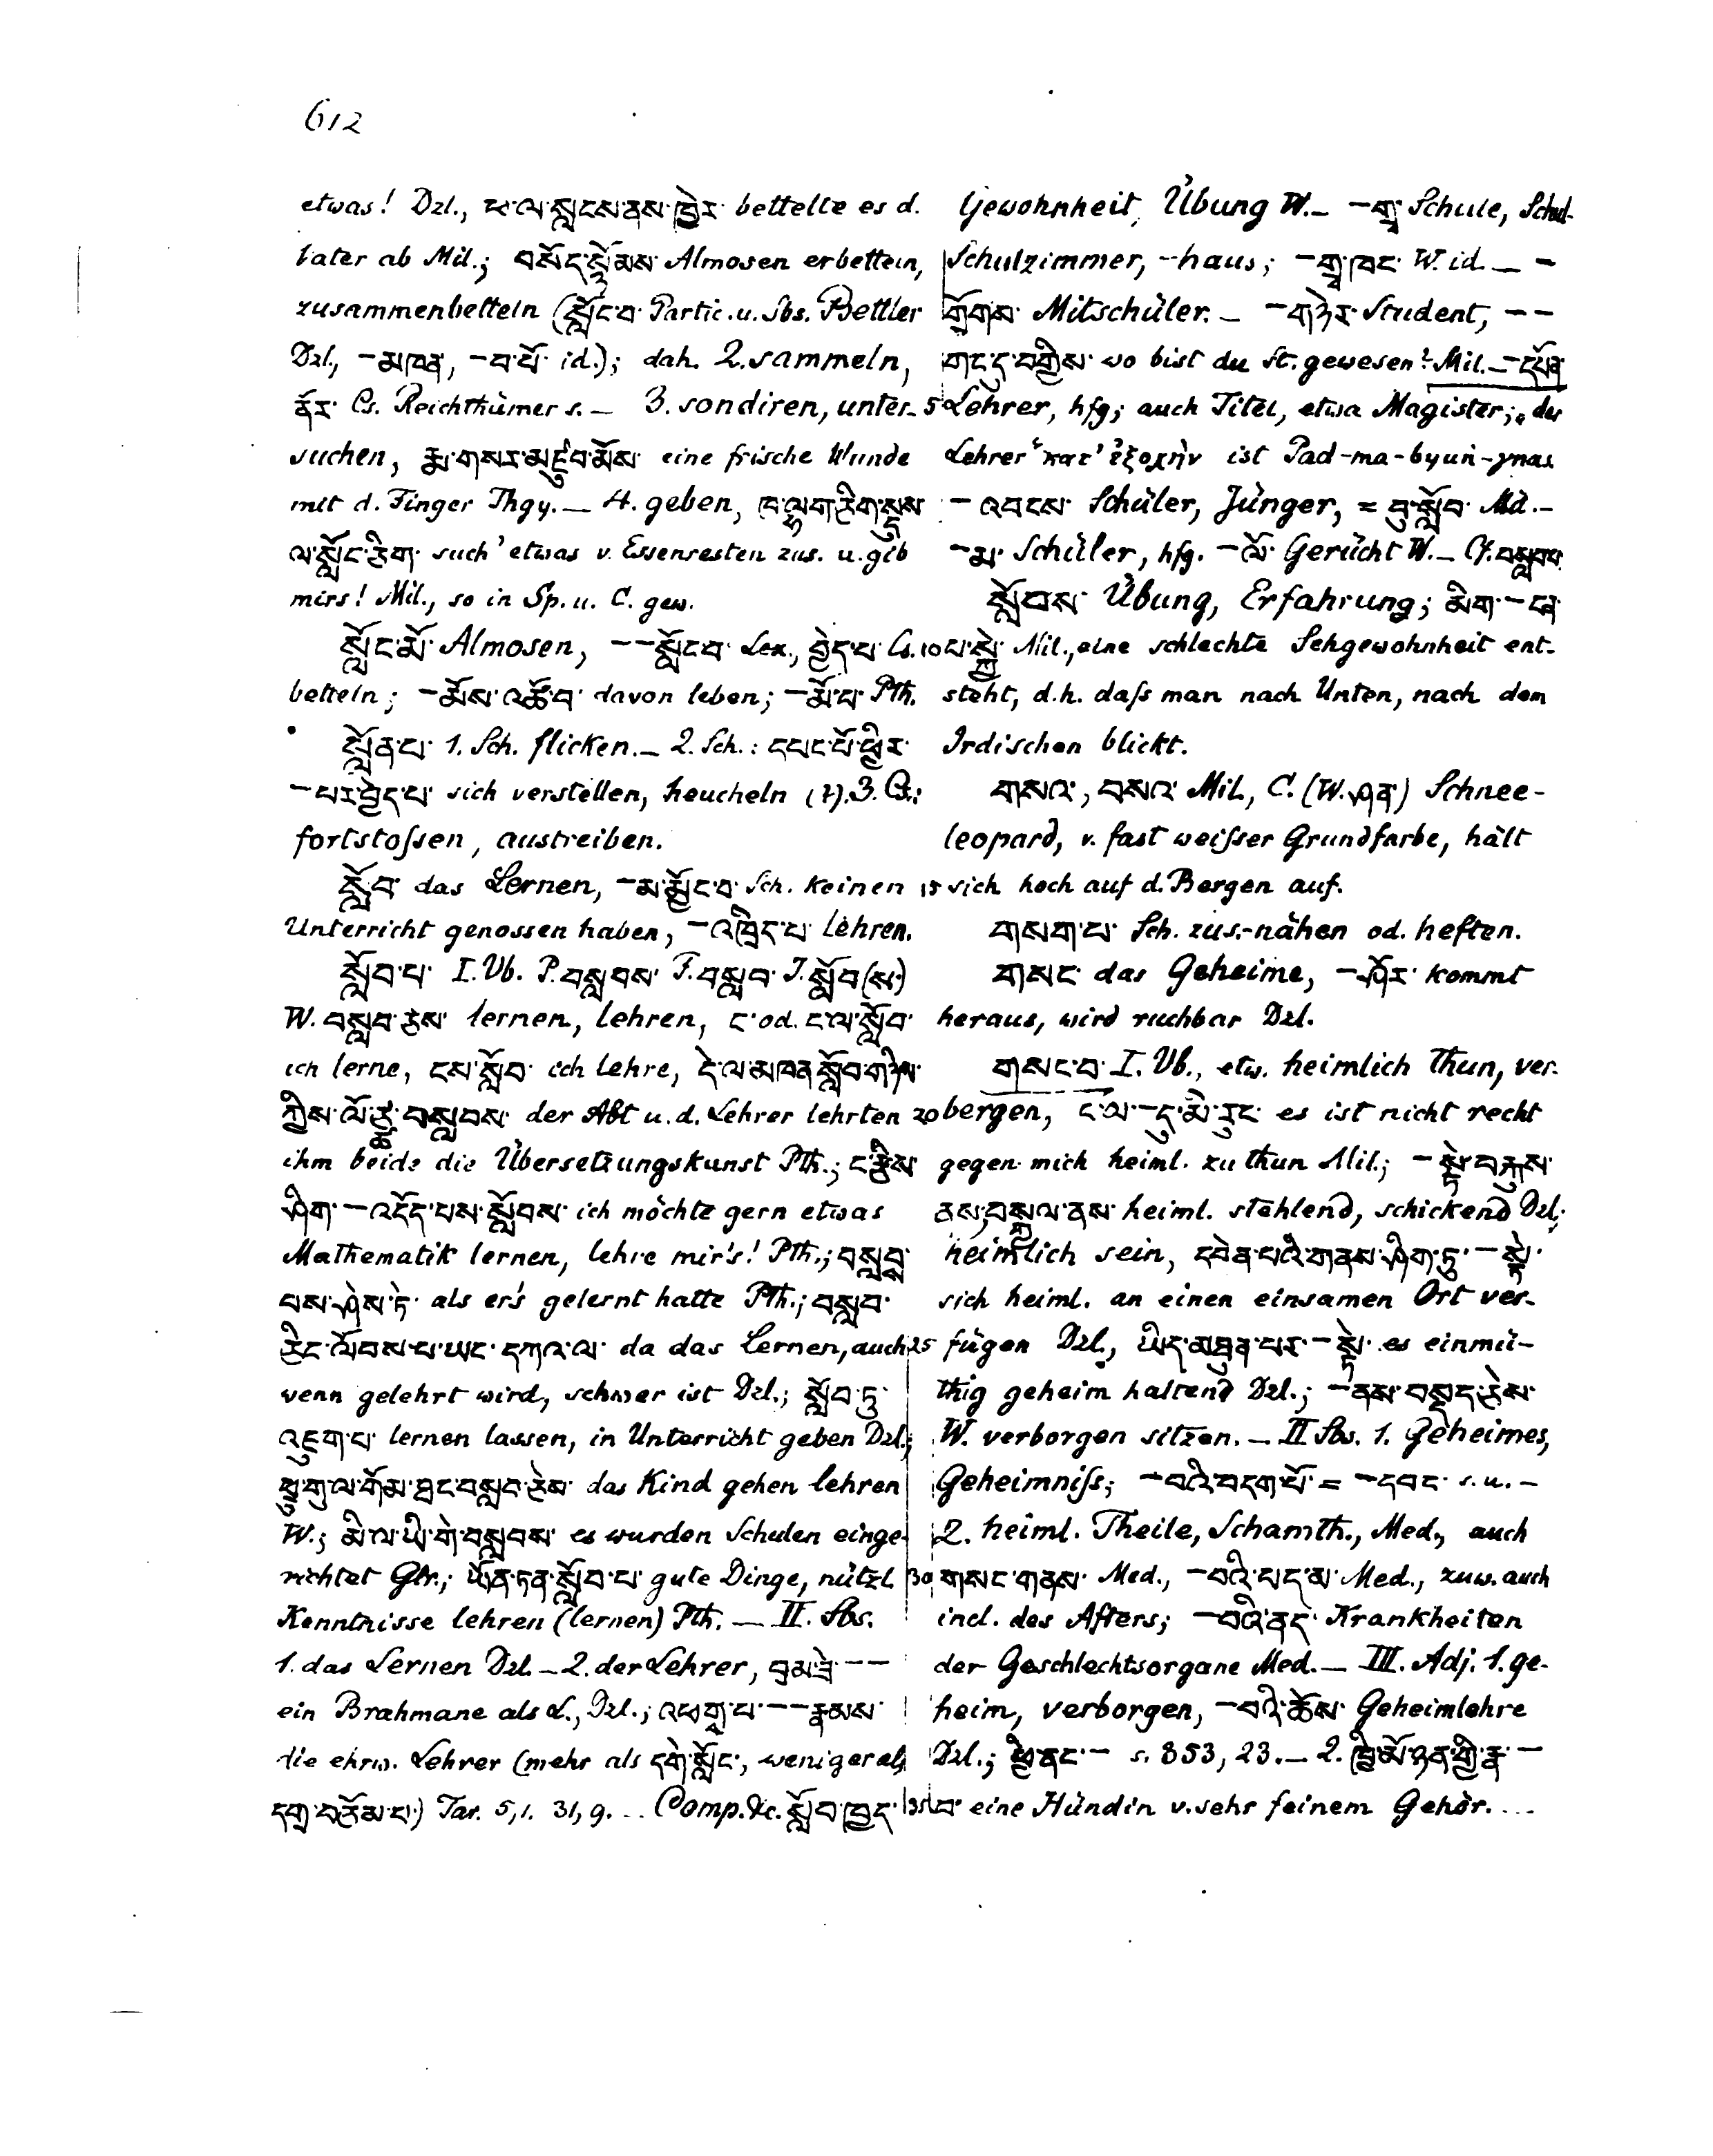 612
etwas! Dzl., ཕ་ལ་སླངས་ནས་ཁྱེར་ bettelte es d.
Vater ab Mil.; བསོད་སྙོམས་ Almosen erbetteln,
zusammenbetteln (སློང་བ་ Partic. u. Sbs. Bettler
Dzl., –མཁན་, –བ་པོ་ id.); dah. 2. sammeln,
ནོར་ Cs. Reichthümer s. — 3. sondiren, unter-
suchen, རྨ་གསར་མཛུབ་མོས་ eine frische Wunde
mit d. Finger Thgy. — 4. geben, ཁ་ལྷག་ཅིག་སྡུས་
ལ་སློང་ཅིག་ such' etwas v. Essensresten zus. u. gib
mirs! Mil., so in Sp. u. C. gew.
སློང་མོ་ Almosen, – –སློང་བ་ Lex., བྱེད་པ་ Cs.
betteln; –མོས་འཚོ་བ་ davon leben; –མོ་པ་ Pth.
སློན་པ་ 1. Sch. flicken. — 2. Sch.: དཔང་པོ་ཕྱིར་
–པར་བྱེད་པ་ sich verstellen, heucheln (?). 3. Cs.:
fortstossen, austreiben.
སློབ་ das Lernen, –མ་མྱོང་བ་ Sch. keinen
Unterricht genossen haben, –འཁྲིད་པ་ lehren.
སློབ་པ་ I. Vb. P. བསླབས་ F. བསླབ་ J. སློབ(ས་)
W. བསླབ་ཅེས་ lernen, lehren, ང་ od. ང་ལ་སློབ་
ich lerne, ངས་སློབ་ ich lehre, དེ་ལ་མཁན་སློབ་གཉིས་
ཀྱིས་ལོ་ཙྪ་བསླབས་ der Abt u. d. Lehrer lehrten
ihm beide die Übersetzungskunst Pth.; ང་རྩིས་
ཤིག་–འདོད་པས་སློབས་ ich möchte gern etwas
Mathematik lernen, lehre mir's! Pth.; བསླབ་
པས་ཤེས་ཏེ་ als er's gelernt hatte Pth.; བསླབ་
ཅིང་ལོབས་པ་ཡང་དཀའ་ལ་ da das Lernen, auch
wenn gelehrt wird, schwer ist Dzl.; སློབ་ཏུ་
འཇུག་པ་ lernen lassen, in Unterricht geben Dzl.;
ཕྲུ་གུ་ལ་གོམ་ཐང་བསླབ་ཅེས་ das Kind gehen lehren
W.; མི་ལ་ཡི་གེ་བསླབས་ es wurden Schulen einge-
richtet Glr.; ཡོན་ཏན་སློབ་པ་ gute Dinge, nützl.
Kenntnisse lehren (lernen) Pth. — II. Sbs.
1. das Lernen Dzl. — 2. der Lehrer, བྲམ་ཟེ་ – –
ein Brahmane als L., Dzl.; འཕགས་པ་ – –རྣམས་
die ehrw. Lehrer (mehr als དགེ་སློང་, weniger als
དགྲ་བཅོམ་པ་) Tar. 5,1. 31,9. – Comp. &c. སློབ་ཁྱད་
Gewohnheit, Übung W. – –གྲྭ་ Schule, Schul-
Schulzimmer, -haus; –གྲྭ་ཁང་ W. id. – –
གྲོགས་ Mitschüler. – –གཉེར་ Student, – –
གང་དུ་བགྱིས་ wo bist du St. gewesen? Mil. – –དཔོན་
5 Lehrer, hfg; auch Titel, etwa Magister; „der
Lehrer“ κατ' ἐξοχὴν ist Pad-ma-byuṅ-gnas
–འབངས་ Schüler, Jünger, = བུ་སློབ་ Mil. –
–མ་ Schüler, hfg. –ལོ་ Gerücht W. – Cf. བསླབ་པ་
སློབས་ Übung, Erfahrung; མིག་–ངན་
10 པ་སྐྱེ་ Mil., eine schlechte Sehgewohnheit ent-
steht, d.h. dass man nach Unten, nach dem
Irdischen blickt.
གསའ་, བསའ་ Mil., C. (W. ཤན་) Schnee-
leopard, v. fast weisser Grundfarbe, hält
15 sich hoch auf d. Bergen auf.
གསག་པ་ Sch. zus.-nähen od. heften.
གསང་ das Geheime, –ཤོར་ kommt
heraus, wird ruchbar Dzl.
གསང་བ་ I. Vb., etw. heimlich thun, ver-
20 bergen, ང་ལ་–དུ་མི་རུང་ es ist nicht recht
gegen mich heiml. zu thun Mil.; –སྟེ་བརྐུས་
ནས་, བསྐྱལ་ནས་ heiml. stehlend, schickend Dzl.;
heimlich sein, དབེན་པའི་གནས་ཤིག་ཏུ་–སྟེ་
sich heiml. an einen einsamen Ort ver-
25 fügen Dzl., ཡིད་མཐུན་པར་–སྟེ་ es einmü-
thig geheim haltend Dzl.; –ནས་བསྡད་ཅེས་
W. verborgen sitzen. — II Sbs. 1. Geheimes,
Geheimniss; –བའི་བདག་པོ་ = –དབང་ s. u. –
2. heiml. Theile, Schamth., Med., auch
30 གསང་གནས་ Med., –བའི་པད་མ་ Med., zuw. auch
incl. des Afters; –བའི་ནད་ Krankheiten
der Geschlechtsorgane Med. — III. Adj. 1. ge-
heim, verborgen, –བའི་ཆོས་ Geheimlehre
Dzl.; ཕྱི་ནང་– s. 353, 23. – 2. ཁྱི་མོ་ཉན་གྱི་རྣ་–
35 བ་ eine Hündin v. sehr feinem Gehör. ...